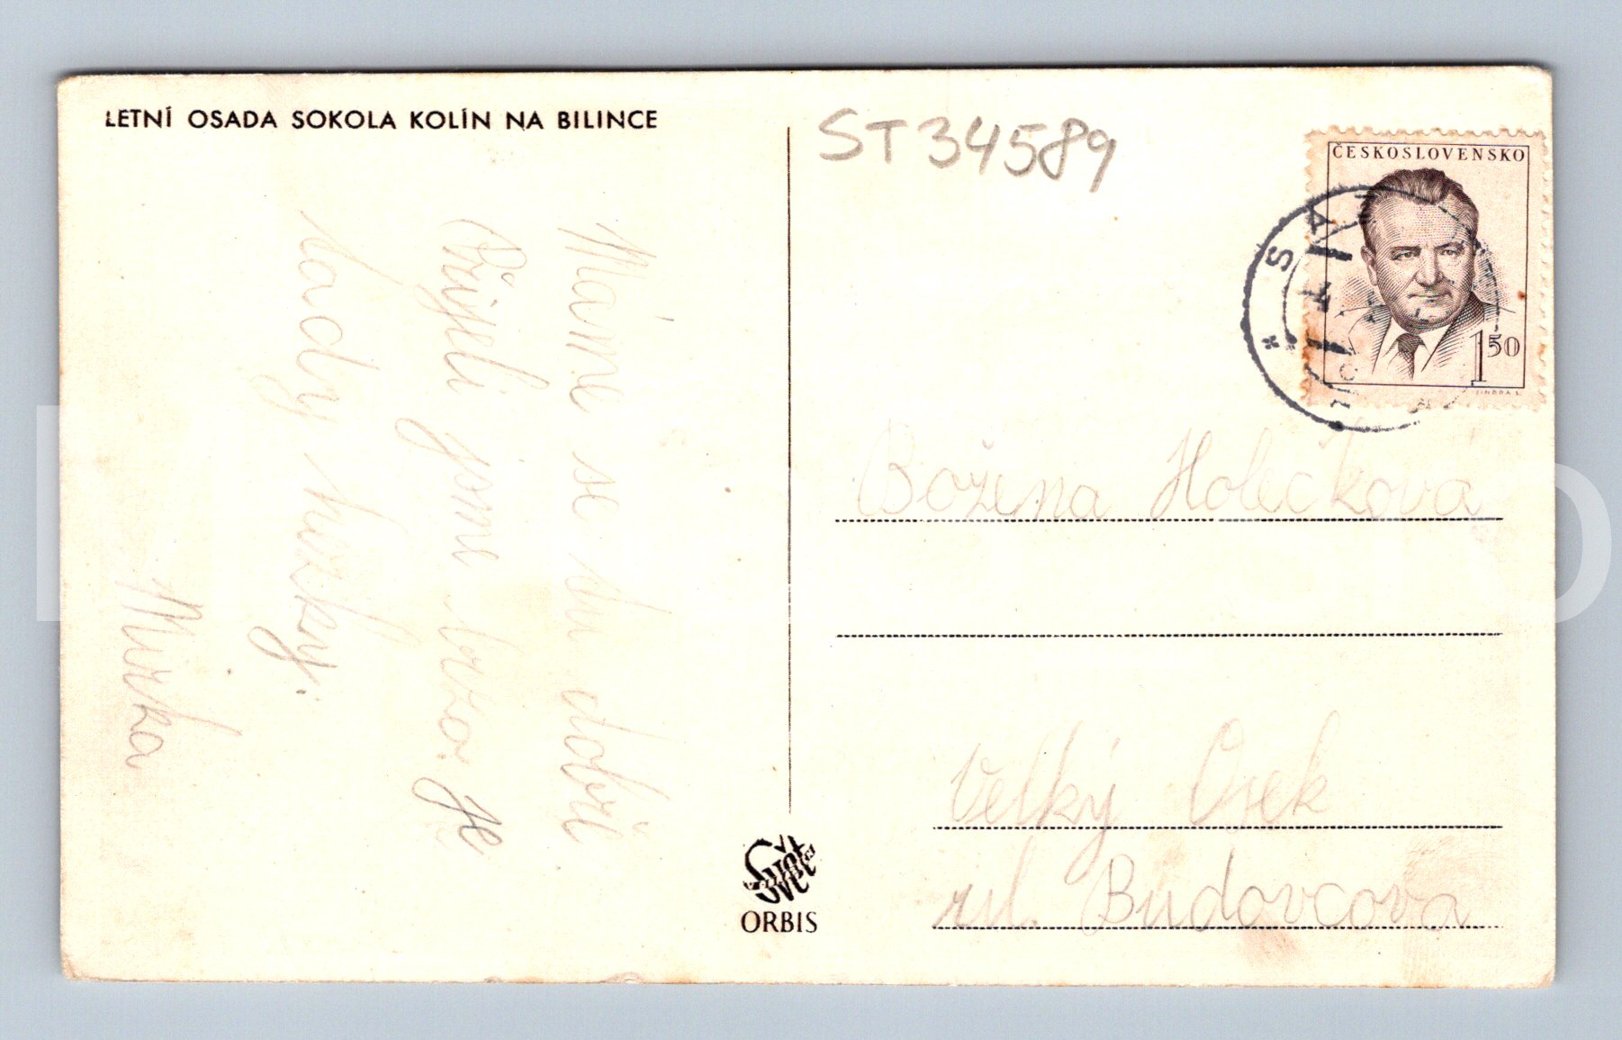 LETNÍ OSADA SOKOLA KOLÍN NA BILINCE
ST34589
ČESKOSLOVENSKO
1 50
Máme se tu dobře
Přijeli jsme brzo. Je
tady hezky.
Mirka
Božena Holečková
Velký Osek
ul. Budovcova
Svět
ORBIS